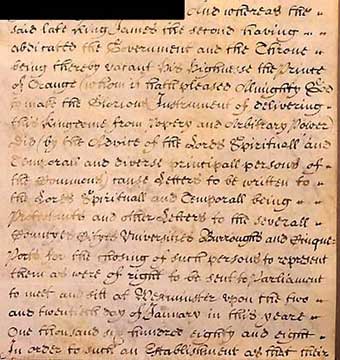 And whereas the
said late King James the second having
abdicated the Government and the Throne
being thereby vacant his Highnesse the Prince
of Orange (whom it hath pleased Almighty God
to make the Glorious Instrument of delivering
this Kingdome from Popery and Arbitrary Power)
Did (by the Advice of the Lords Spirituall and
Temporall and diverse principall persons of
the Commons) cause Letters to be written to
the Lords Spirituall and Temporall being
Protestants and other Letters to the severall
Countyes Cityes Universities Burroughs and Cinque
Ports for the chosing of such persons to represent
them as were of right to be sent to Parliament
to meet and sitt at Westminster upon the two
and twentieth day of January in this yeare
One thousand six hundred eighty and eight
In order to such an Establishment as that their